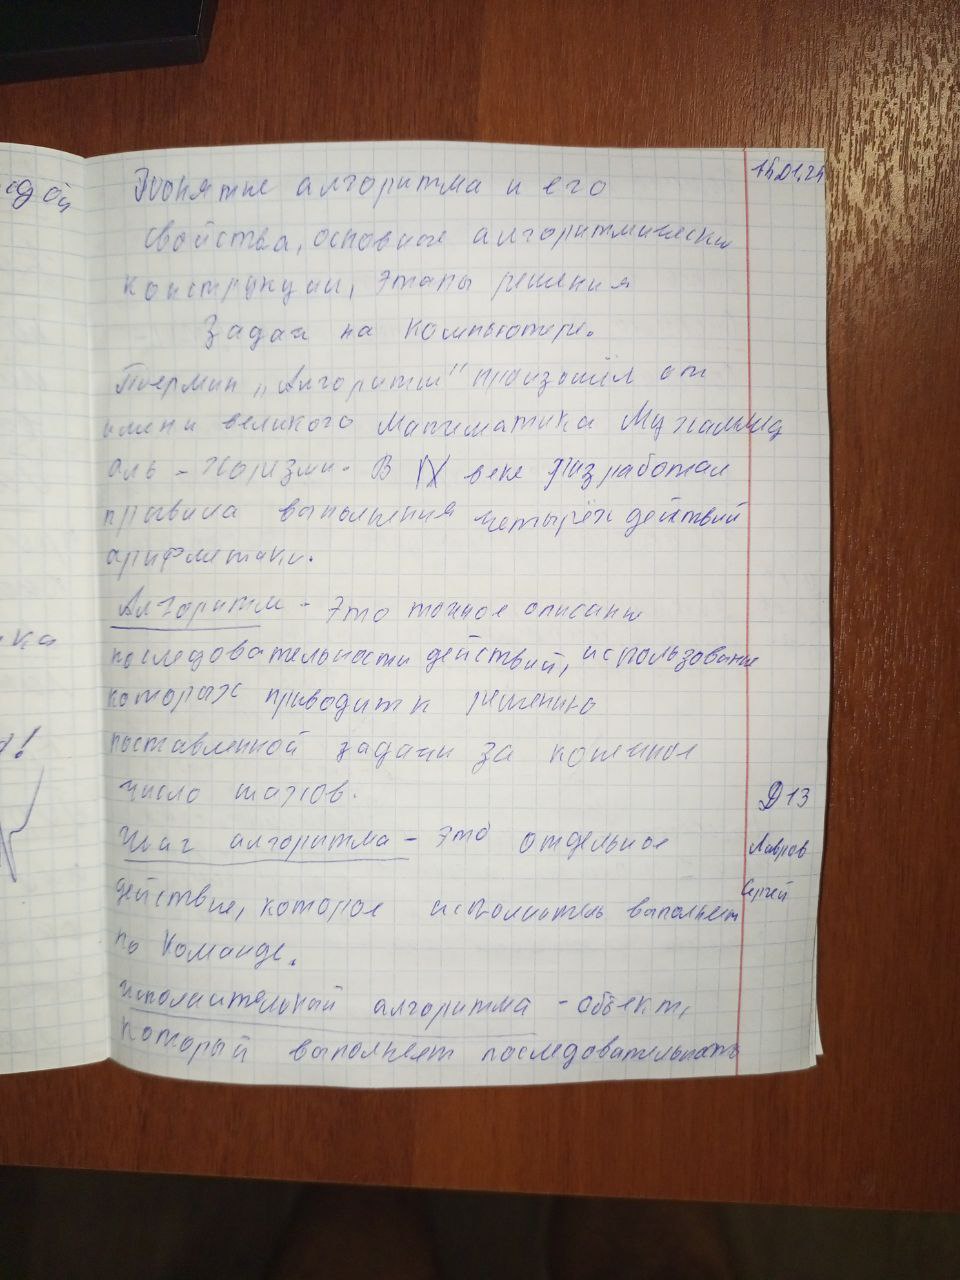 15.01.24
Понятие алгоритма и его
свойства, основные алгоритмически
конструкции, этапы решения
задач на компьютере.
Термин „Алгоритм" произошёл от
имени великого математика Мухаммед
аль-Хорезми. В IX веке разработал
правила выполнения четырёх действий
арифметики.
Алгоритм - это точное описание
последовательности действий, использование
которых приводит к решению
поставленной задачи за конечное
число шагов.
Шаг алгоритма - это отдельное
действие, которое исполнитель выполняет
по команде.
исполнительный алгоритма - объект,
который выполняет последовательность
Д 13
Лавров
Сергей
ка